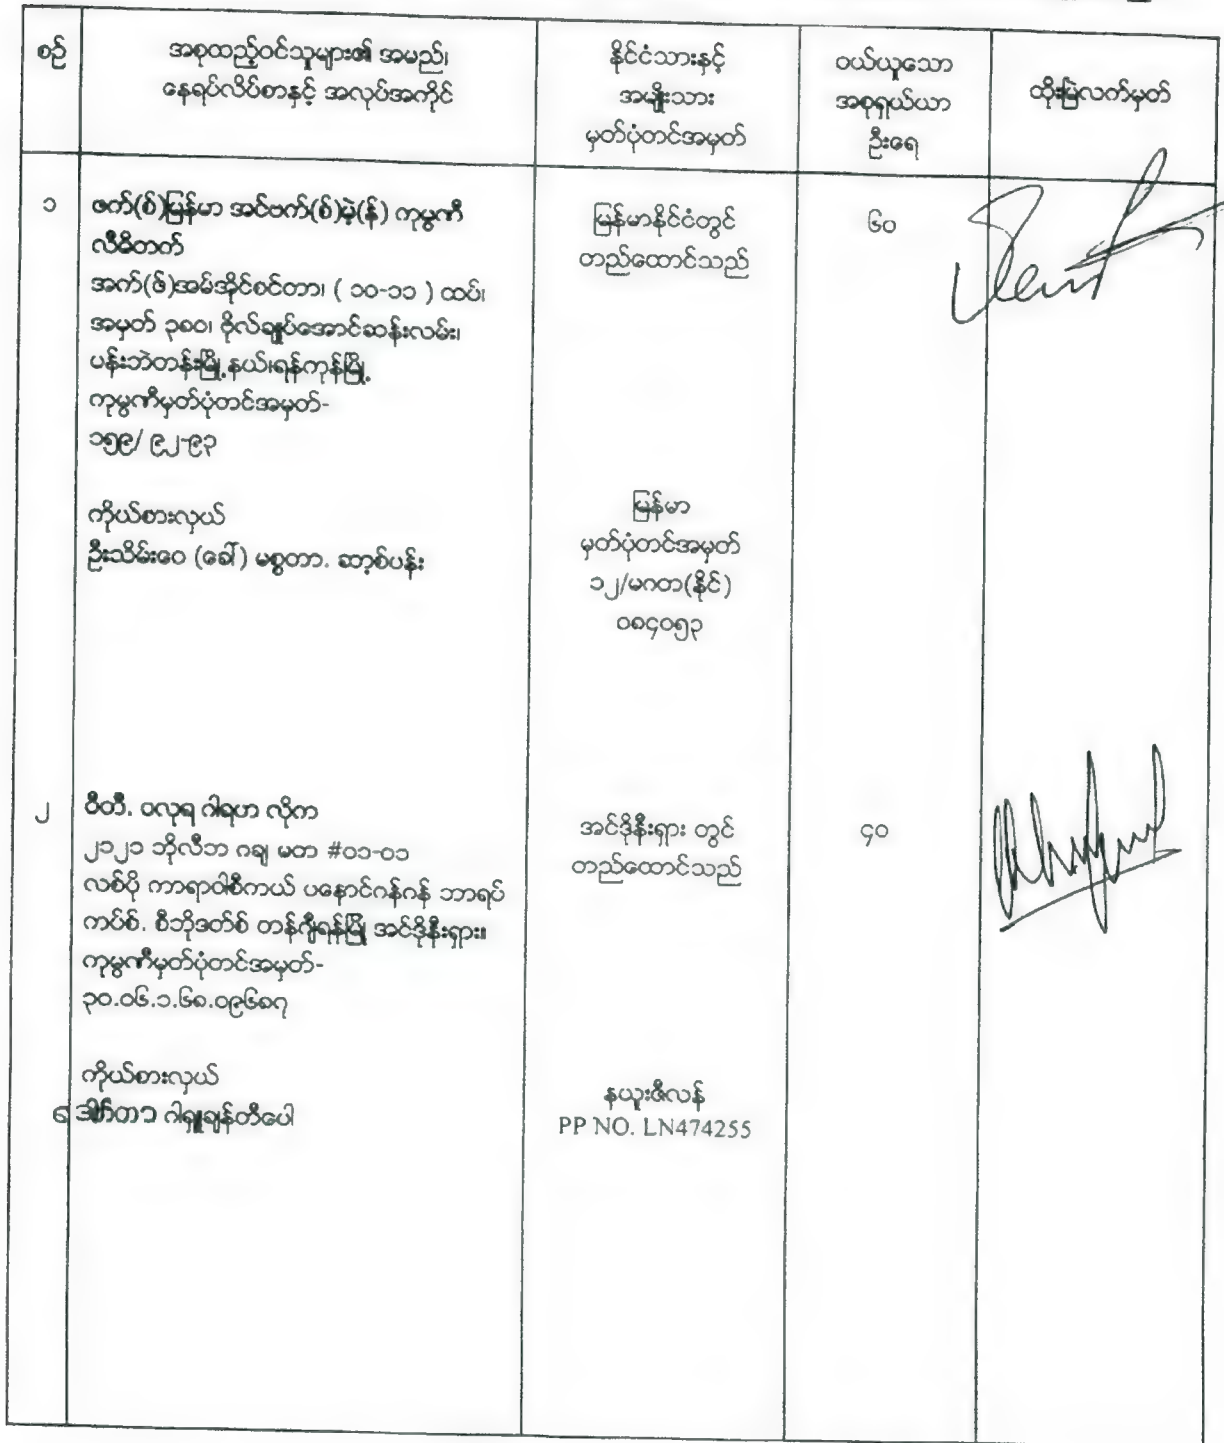 စဉ်
အစုထည့်ဝင်သူများ၏ အမည်၊
နေရပ်လိပ်စာနှင့် အလုပ်အကိုင်
နိုင်ငံသားနှင့်
အမျိုးသား
မှတ်ပုံတင်အမှတ်
ဝယ်ယူသော
အစုရှယ်ယာ
ဦးရေ
ထိုးမြဲလက်မှတ်
၁
ဇက်(စ်)မြန်မာ အင်ဗက်(စ်)မဲ့(န်) ကုမ္ပဏီ
လီမိတက်
အက်(ဖ်)အမ်အိုင်စင်တာ၊ ( ၁၀-၁၁ ) ထပ်၊
အမှတ် ၃၈၀၊ ဗိုလ်ချုပ်အောင်ဆန်းလမ်း၊
ပန်းဘဲတန်းမြို့နယ်၊ရန်ကုန်မြို့
ကုမ္ပဏီမှတ်ပုံတင်အမှတ်-
၁၅၉/ ၉၂-၉၃
မြန်မာနိုင်ငံတွင်
တည်ထောင်သည်
၆၀
ကိုယ်စားလှယ်
ဦးသိမ်းဝေ (ခေါ်) မစ္စတာ. ဆာ့စ်ပန်း
မြန်မာ
မှတ်ပုံတင်အမှတ်
၁၂/မဂတ(နိုင်)
၀၈၄၀၅၃
၂
ပီတီ. ဝလုရ ဂါရဟ လိုက
၂၁၂၁ ဘိုလီဘ ဂချ မတ #၀၁-၀၁
လစ်ပို ကာရာဝါစီကယ် ပနောင်ဂန်ဂန် ဘာရပ်
ကပ်စ်. စီဘိုဒတ်စ် တန်ဂျီရန်မြို့ အင်ဒိုနီးရှား။
ကုမ္ပဏီမှတ်ပုံတင်အမှတ်-
၃၀.၀၆.၁.၆၈.၀၉၆၈၇
အင်ဒိုနီးရှား တွင်
တည်ထောင်သည်
၄၀
ကိုယ်စားလှယ်
ဂါရှူချန်တီပေါ
နယူးဇီလန်
PP NO. LN474255